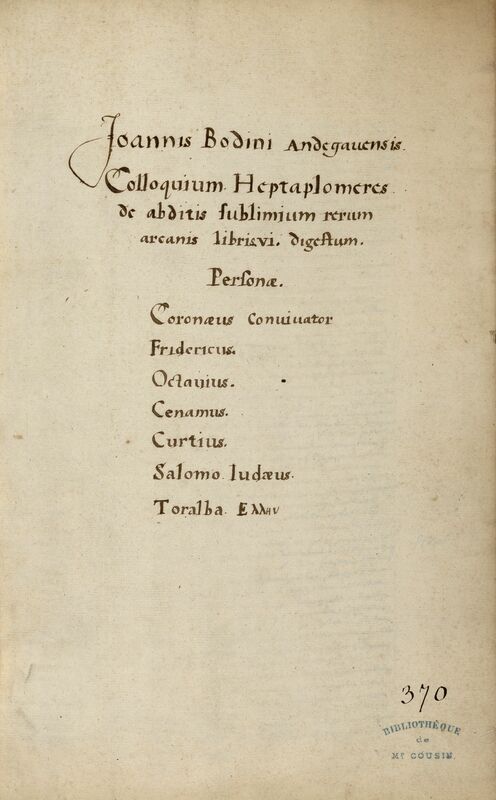 Joannis Bodini Andegauensis.
Colloquium Heptaplomeres
de abditis sublimium rerum
arcanis libris vi. digestum.
Personæ.
Coronæus Conuiuator
Fridericus.
Octauius.
Cenamus.
Curtius.
Salomo Iudæus.
Toralba Ελλην
370
BIBLIOTHÈQUE
de
Mr COUSIN.